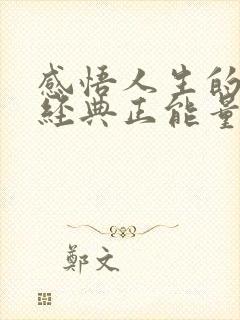 感悟人生的
經典正能量
鄭文